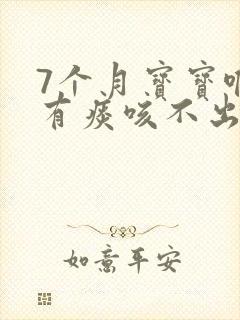 7个月寶寶
有痰咳不出
如意平安